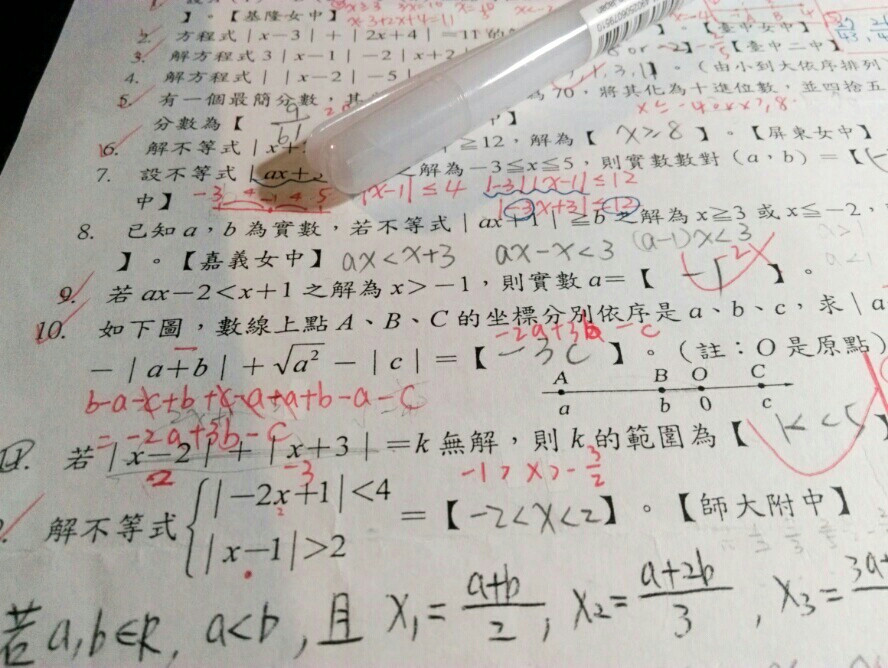 】。【基隆女中】
2. 方程式|x-3|+|2x+4|=11的
【臺中女中】
3. 解方程式3|x-1|-2|x+2
【臺中二中】
4. 解方程式||x-2|-5|
(由小到大依序排列)
5. 有一個最簡分數,其
為70,將其化為十進位數,並四捨五
分數為【 9/61
6. 解不等式|x+
≧12,解為【 x≥8 】。【屏東女中】
7. 設不等式|ax+
之解為-3≦x≦5,則實數數對(a,b)=【(-
中】 -3 4 -1 4 5 |x-1|≤4 |-3||x-1|≤12
|-3x+3|≤12
8. 已知a,b為實數,若不等式|ax+1|≧b之解為x≧3或x≦-2,
】。【嘉義女中】 ax<x+3 ax-x<3 (a-1)x<3
9. 若ax-2<x+1之解為x>-1,則實數a=【 -1 2 】。
10. 如下圖,數線上點A、B、C的坐標分別依序是a、b、c,求|a
-2a+3b-c
-|a+b|+√a²-|c|=【 -3c 】。(註:O是原點)
A B O C
a b 0 c
b-a-c+b+c-a+a+b-a-c
=-2a+3b-c
11. 若|x-2|+|x+3|=k無解,則k的範圍為【 k<5 】
2 -3 -1>x>-3/2
解不等式{|-2x+1|<4
|x-1|>2
=【 -2<x<2 】。【師大附中】
若a,b∈R, a<b, 且 X₁=a+b/2, X₂=a+2b/3, X₃=3a+